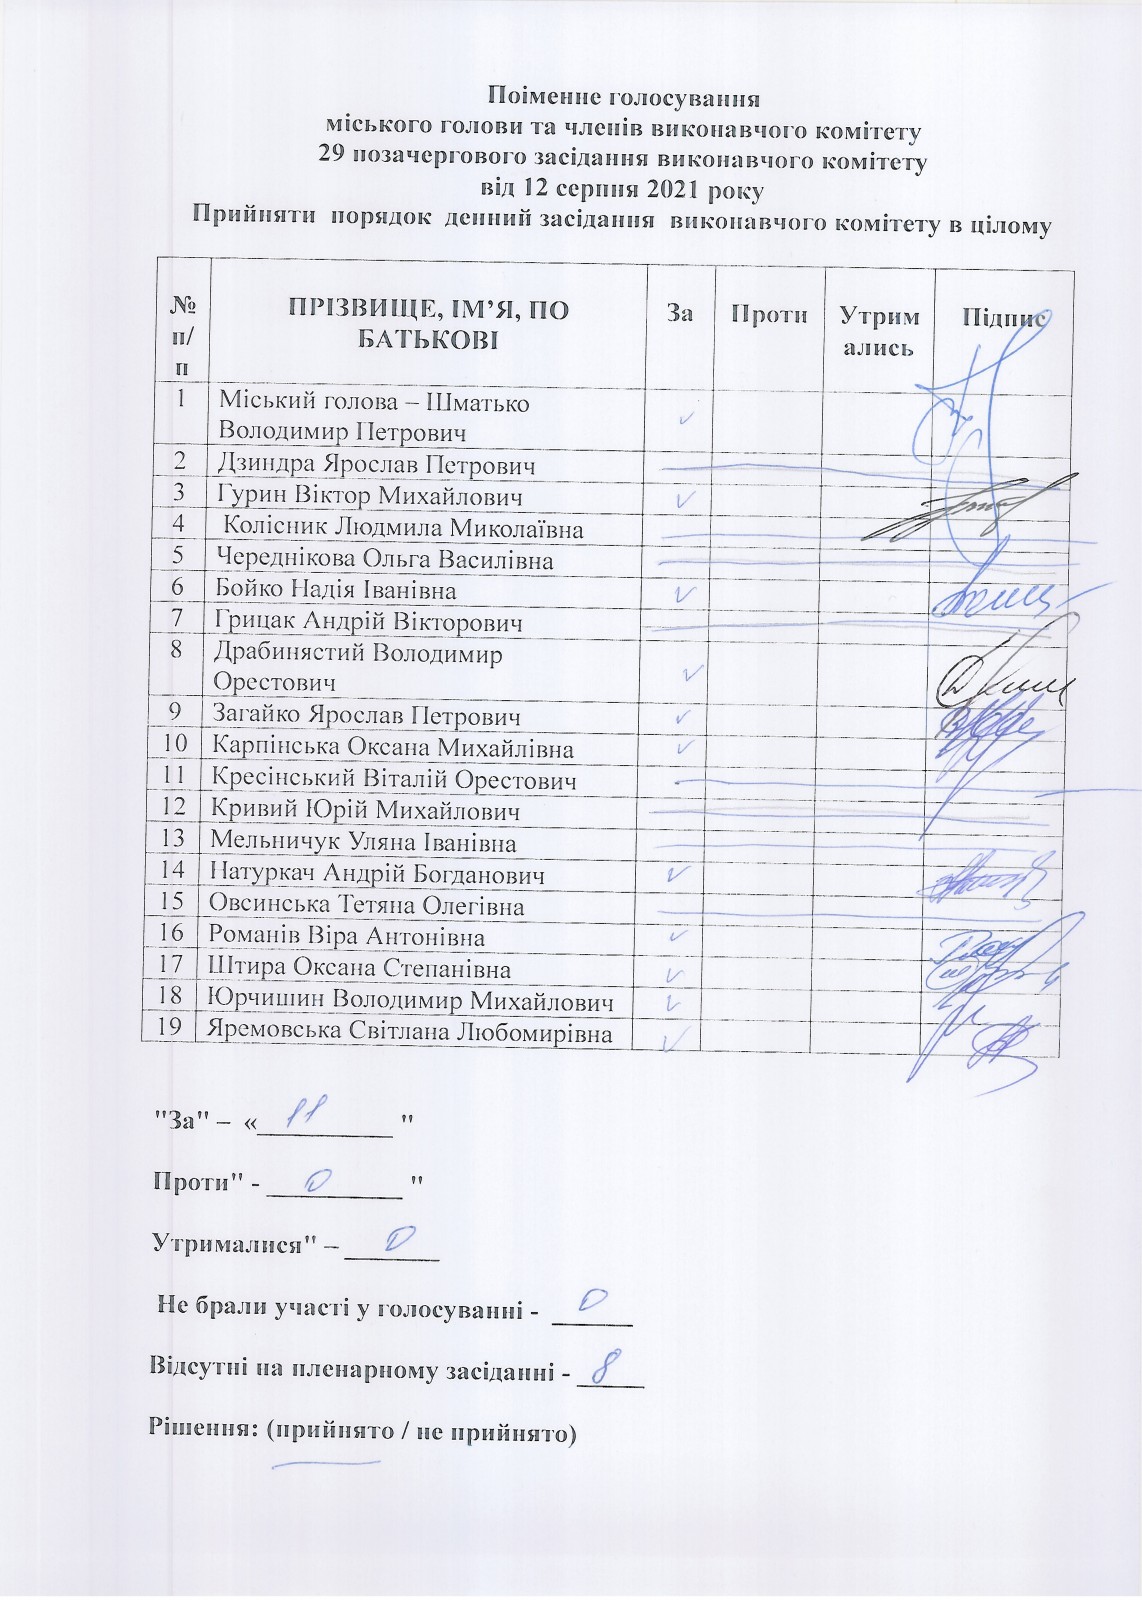 Поіменне голосування
міського голови та членів виконавчого комітету
29 позачергового засідання виконавчого комітету
від 12 серпня 2021 року
Прийняти порядок денний засідання виконавчого комітету в цілому
№ п/п ПРІЗВИЩЕ, ІМ’Я, ПО БАТЬКОВІ За Проти Утримались Підпис
1 Міський голова – Шматько
Володимир Петрович ✓
2 Дзиндра Ярослав Петрович
3 Гурин Віктор Михайлович ✓
4 Колісник Людмила Миколаївна
5 Череднікова Ольга Василівна
6 Бойко Надія Іванівна ✓
7 Грицак Андрій Вікторович
8 Драбинястий Володимир
Орестович ✓
9 Загайко Ярослав Петрович ✓
10 Карпінська Оксана Михайлівна ✓
11 Кресінський Віталій Орестович
12 Кривий Юрій Михайлович
13 Мельничук Уляна Іванівна
14 Натуркач Андрій Богданович ✓
15 Овсинська Тетяна Олегівна
16 Романів Віра Антонівна ✓
17 Штира Оксана Степанівна ✓
18 Юрчишин Володимир Михайлович ✓
19 Яремовська Світлана Любомирівна ✓
"За" – «11 "
Проти" - 0 "
Утрималися" – 0
Не брали участі у голосуванні - 0
Відсутні на пленарному засіданні - 8
Рішення: (прийнято / не прийнято)